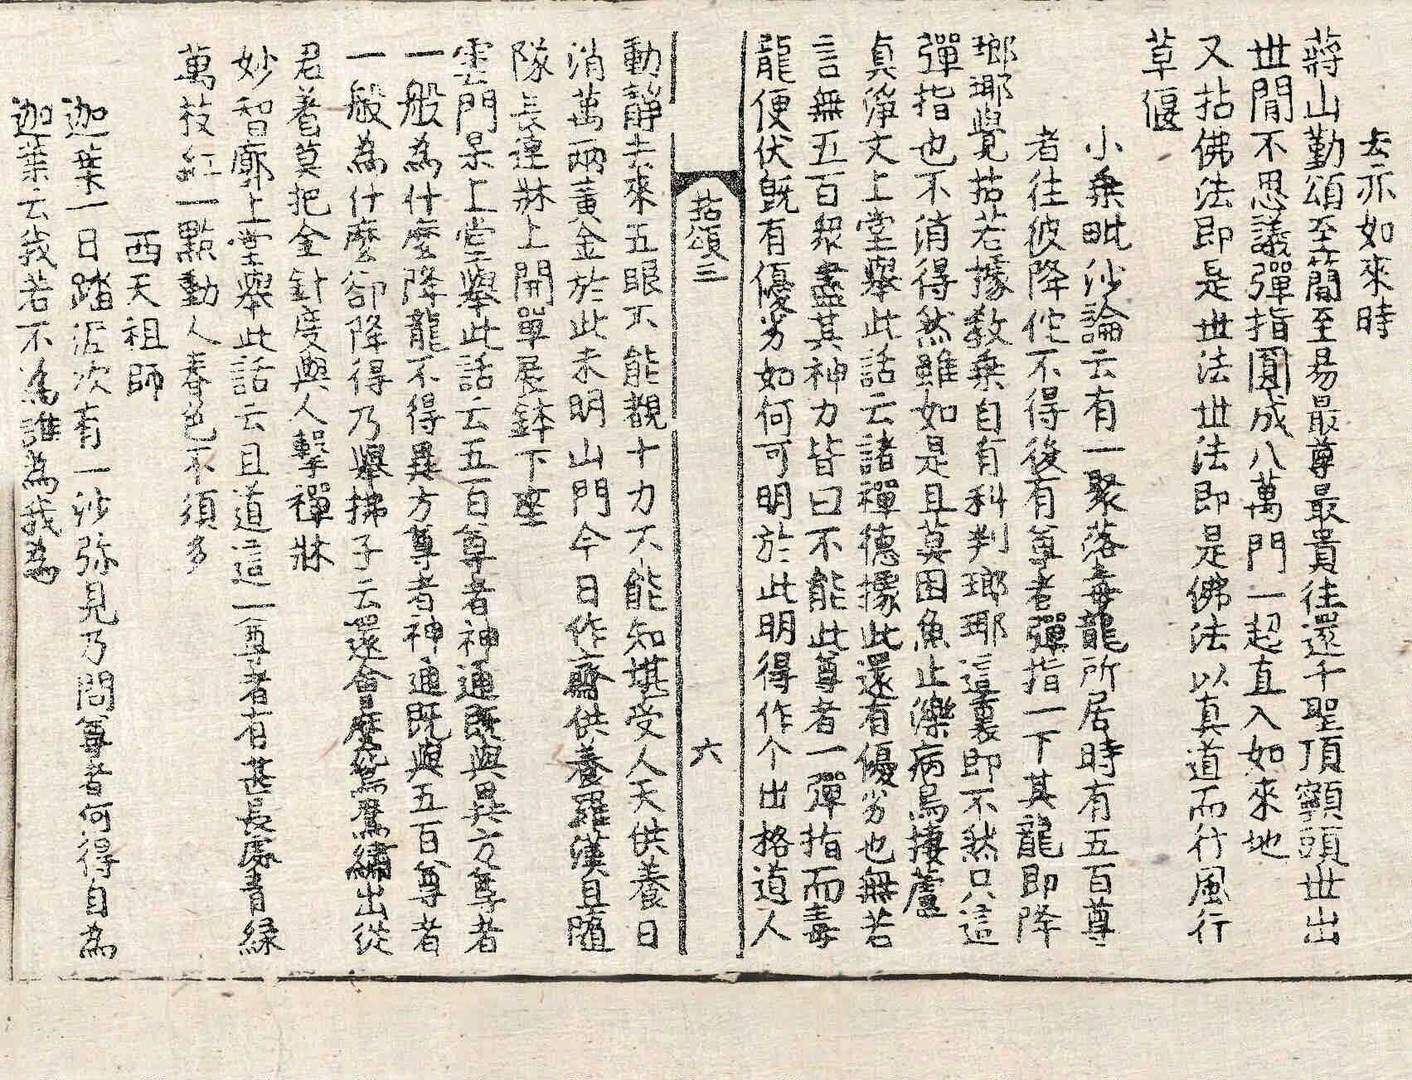 去亦如來時
蔣山勤頌至簡至易最尊最貴往還千聖頂𩕳頭世出
世間不思議彈指圓成八萬門一超直入如來地
又拈佛法即是世法世法即是佛法以真道而行風行
草偃
小乘毗沙論云有一聚落毒龍所居時有五百尊
者往彼降佗不得後有尊者彈指一下其龍即降
瑯瑘覺拈若據教乘自有科判瑯瑘這裏即不然只這
彈指也不消得然雖如是且莫困魚止濼病鳥棲蘆
真淨文上堂舉此話云諸禪德據此還有優劣也無若
言無五百眾盡其神力皆曰不能此尊者一彈指而毒
龍便伏既有優劣如何可明於此明得作个出格道人
拈頌三
六
動靜去來五眼不能觀十力不能知堪受人天供養日
消萬兩黃金於此未明山門今日作齋供養羅漢且隨
隊長連牀上開單展鉢下𡎺
雲門杲上堂舉此話云五百尊者神通既與異方尊者
一般為什麼降龍不得異方尊者神通既與五百尊者
一般為什麼卻降得乃舉拂子云還會麼鴛鴦繡出從
君看莫把金針度與人擊禪牀
妙智廓上堂舉此話云且道這一尊者有甚長處青緑
萬枝紅一點動人春色不須多
西天祖師
迦葉一日踏泥次有一沙弥見乃問尊者何得自為
迦葉云我若不為誰為我為